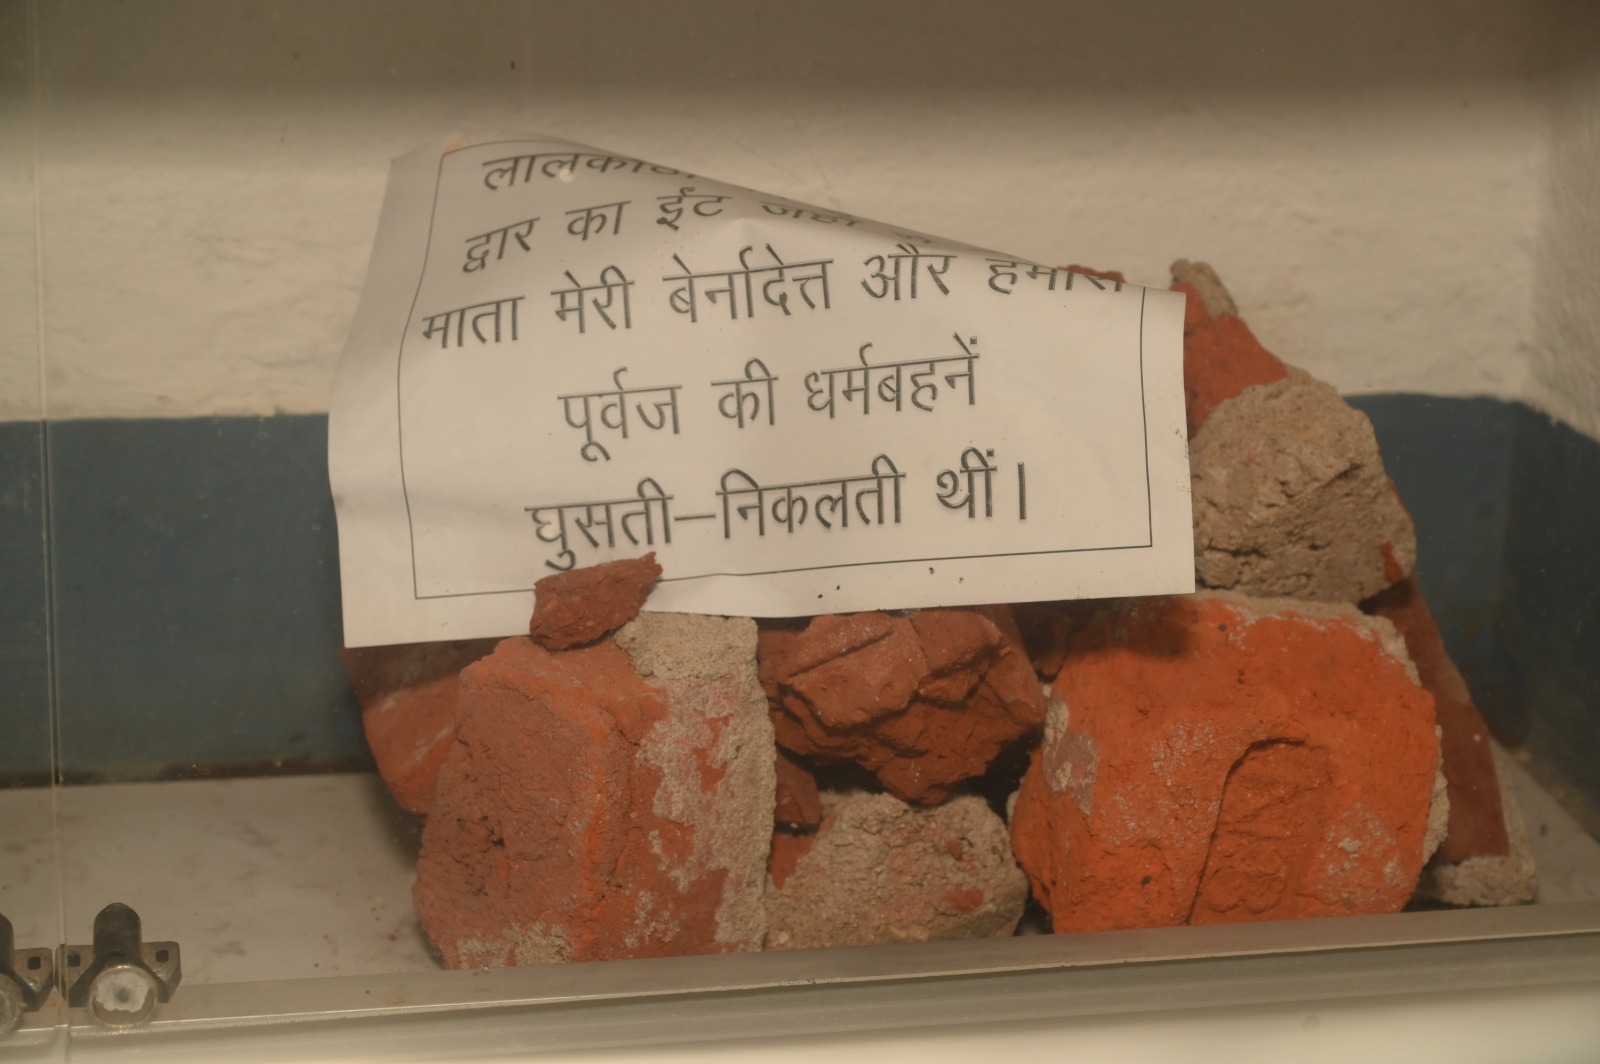 द्वार का ईंट जहाँ
माता मेरी बेर्नादेत्त और हमारी
पूर्वज की धर्मबहनें
घुसती–निकलती थीं।